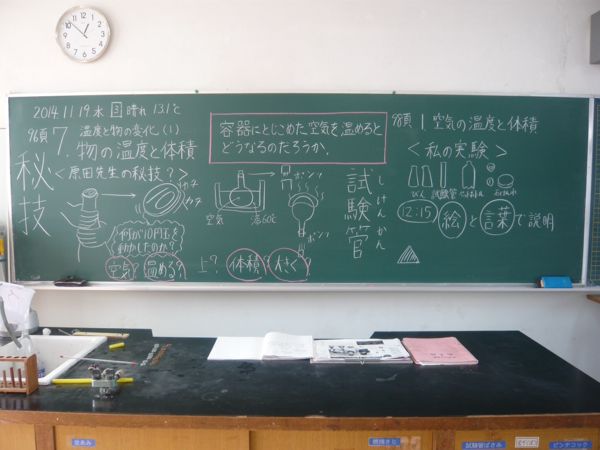 2014.11.19 水 3 晴れ 13.1℃
96頁 7. 温度と物の変化(1)
物の温度と体積
秘技
<原田先生の秘技?>
カチ
カチ
何が10円玉を
動かしたのか?
空気? 温める? 上? 体積? 大きく?
容器にとじこめた空気を温めると
どうなるのだろうか。
ポンッ
空気
湯60℃
ポンッ
試験管
しけんかん
98頁 1. 空気の温度と体積
<私の実験>
びん 試験管
12:15 絵と言葉で説明
試験管ばさみ
ピンチコック